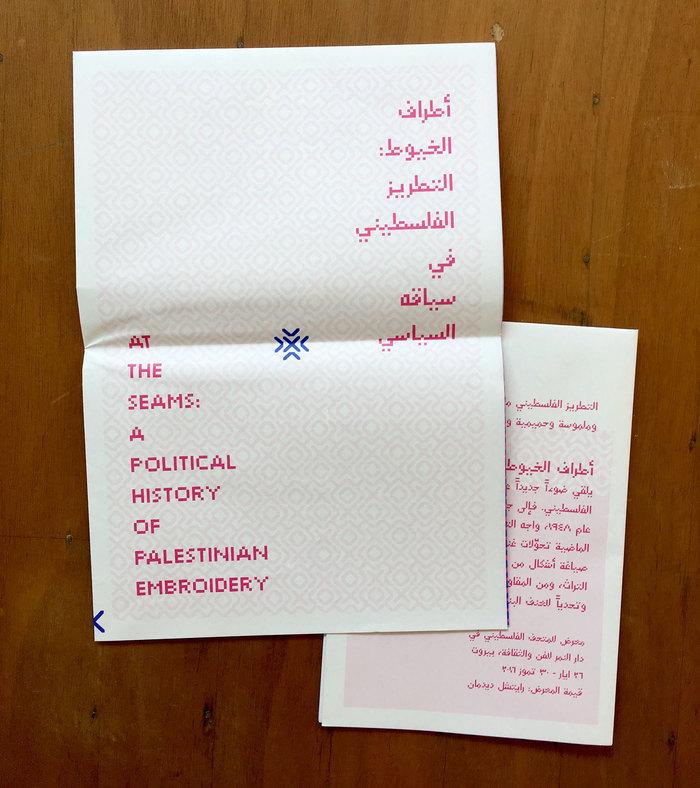 أطراف
الخيوط:
التطريز
الفلسطيني
في
سياقه
السياسي
AT
THE
SEAMS:
A
POLITICAL
HISTORY
OF
PALESTINIAN
EMBROIDERY
التطريز الفلسطيني
وملموسة وحميمية
أطراف الخيوط
يلقي ضوءاً جديداً
الفلسطيني. فإلى
عام ١٩٤٨، واجه
الماضية تحوّلات
صياغة أشكال من
التراث، ومن المقاو
وتحدياً للعنف
معرض للمتحف الفلسطيني في
دار النمر للفن والثقافة، بيروت
٢٦ ايار - ٣٠ تموز ٢٠١٦
قيمة المعرض: رايتشل ديدمان